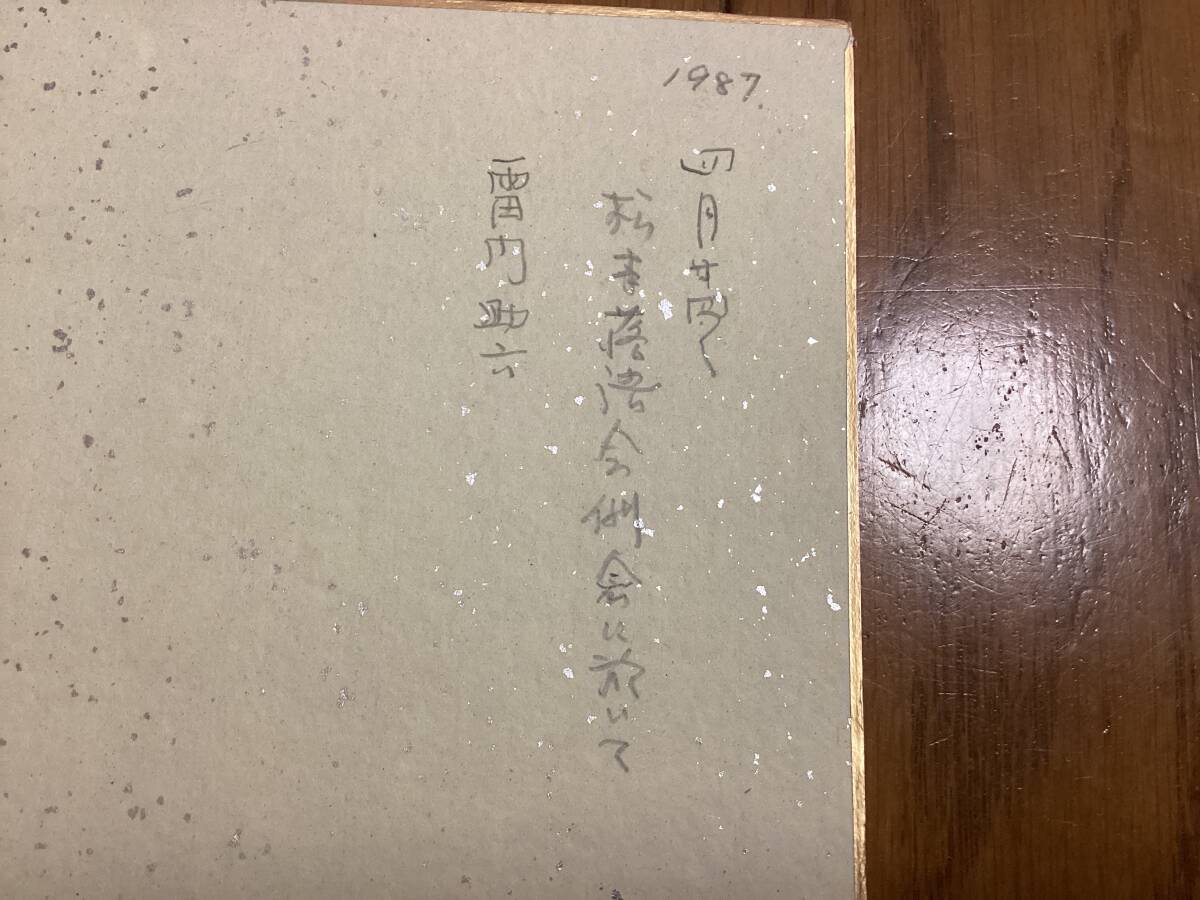 1987.
四月廿四日
松本落語会例会に於いて
雷門助六